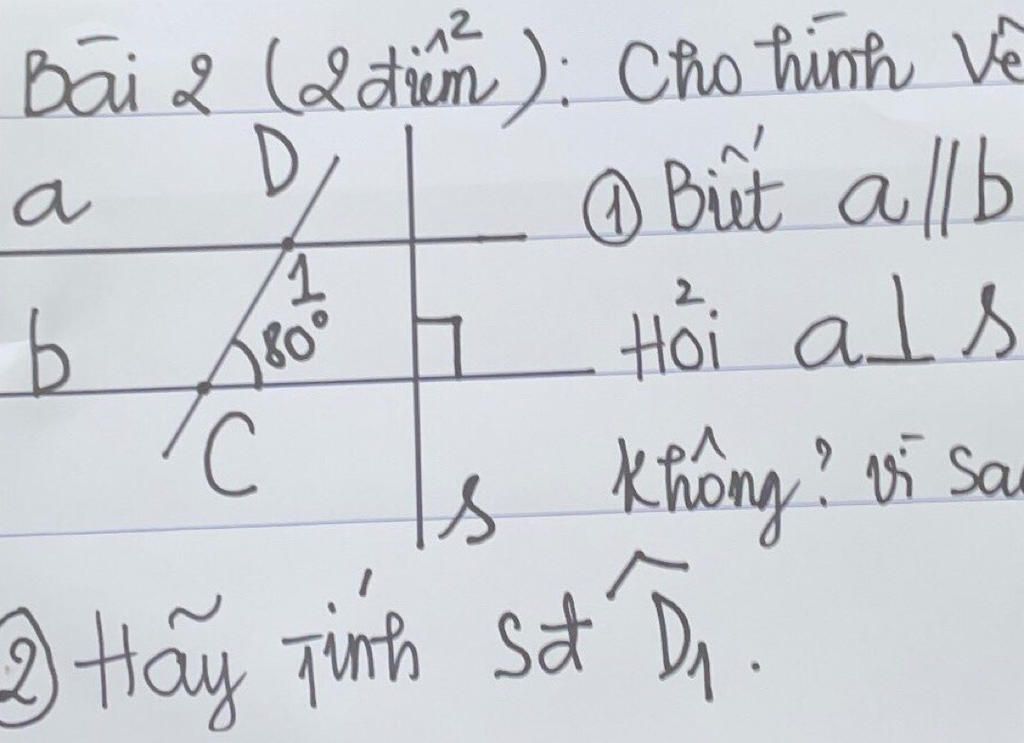 Bài 2 (2 điểm): Cho hình vẽ
D
a
① Biết a // b
1
80°
b
Hỏi a ⊥ s
C
không? vì sa
s
② Hãy tính sđ D̂₁.